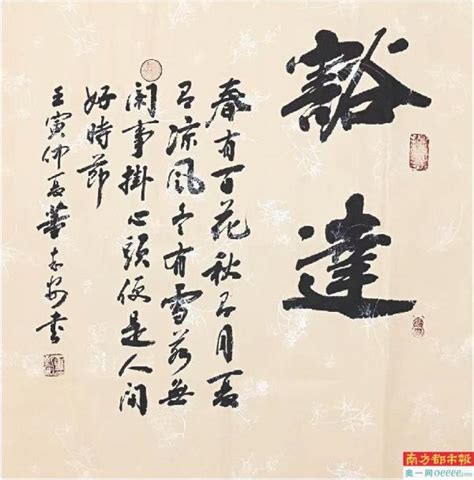 豁達
春有百花秋有月夏
有凉風冬有雪若無
閑事掛心頭便是人間
好時節
壬寅仲夏董書
南方都市報
奥一网oeeee.com